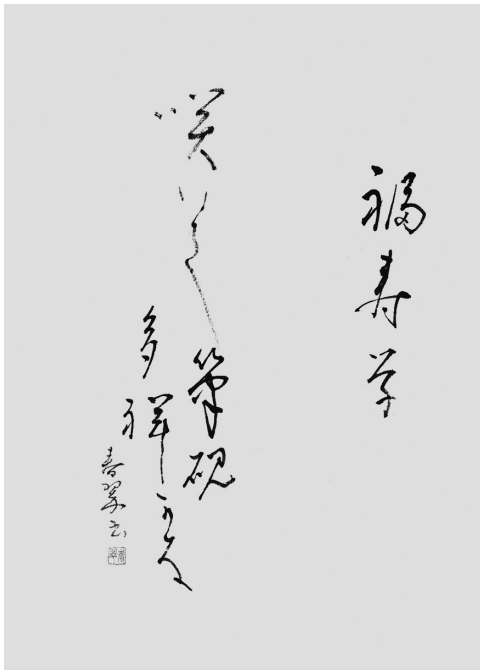 福寿草
咲いて筆硯
多祥かな
春翠書